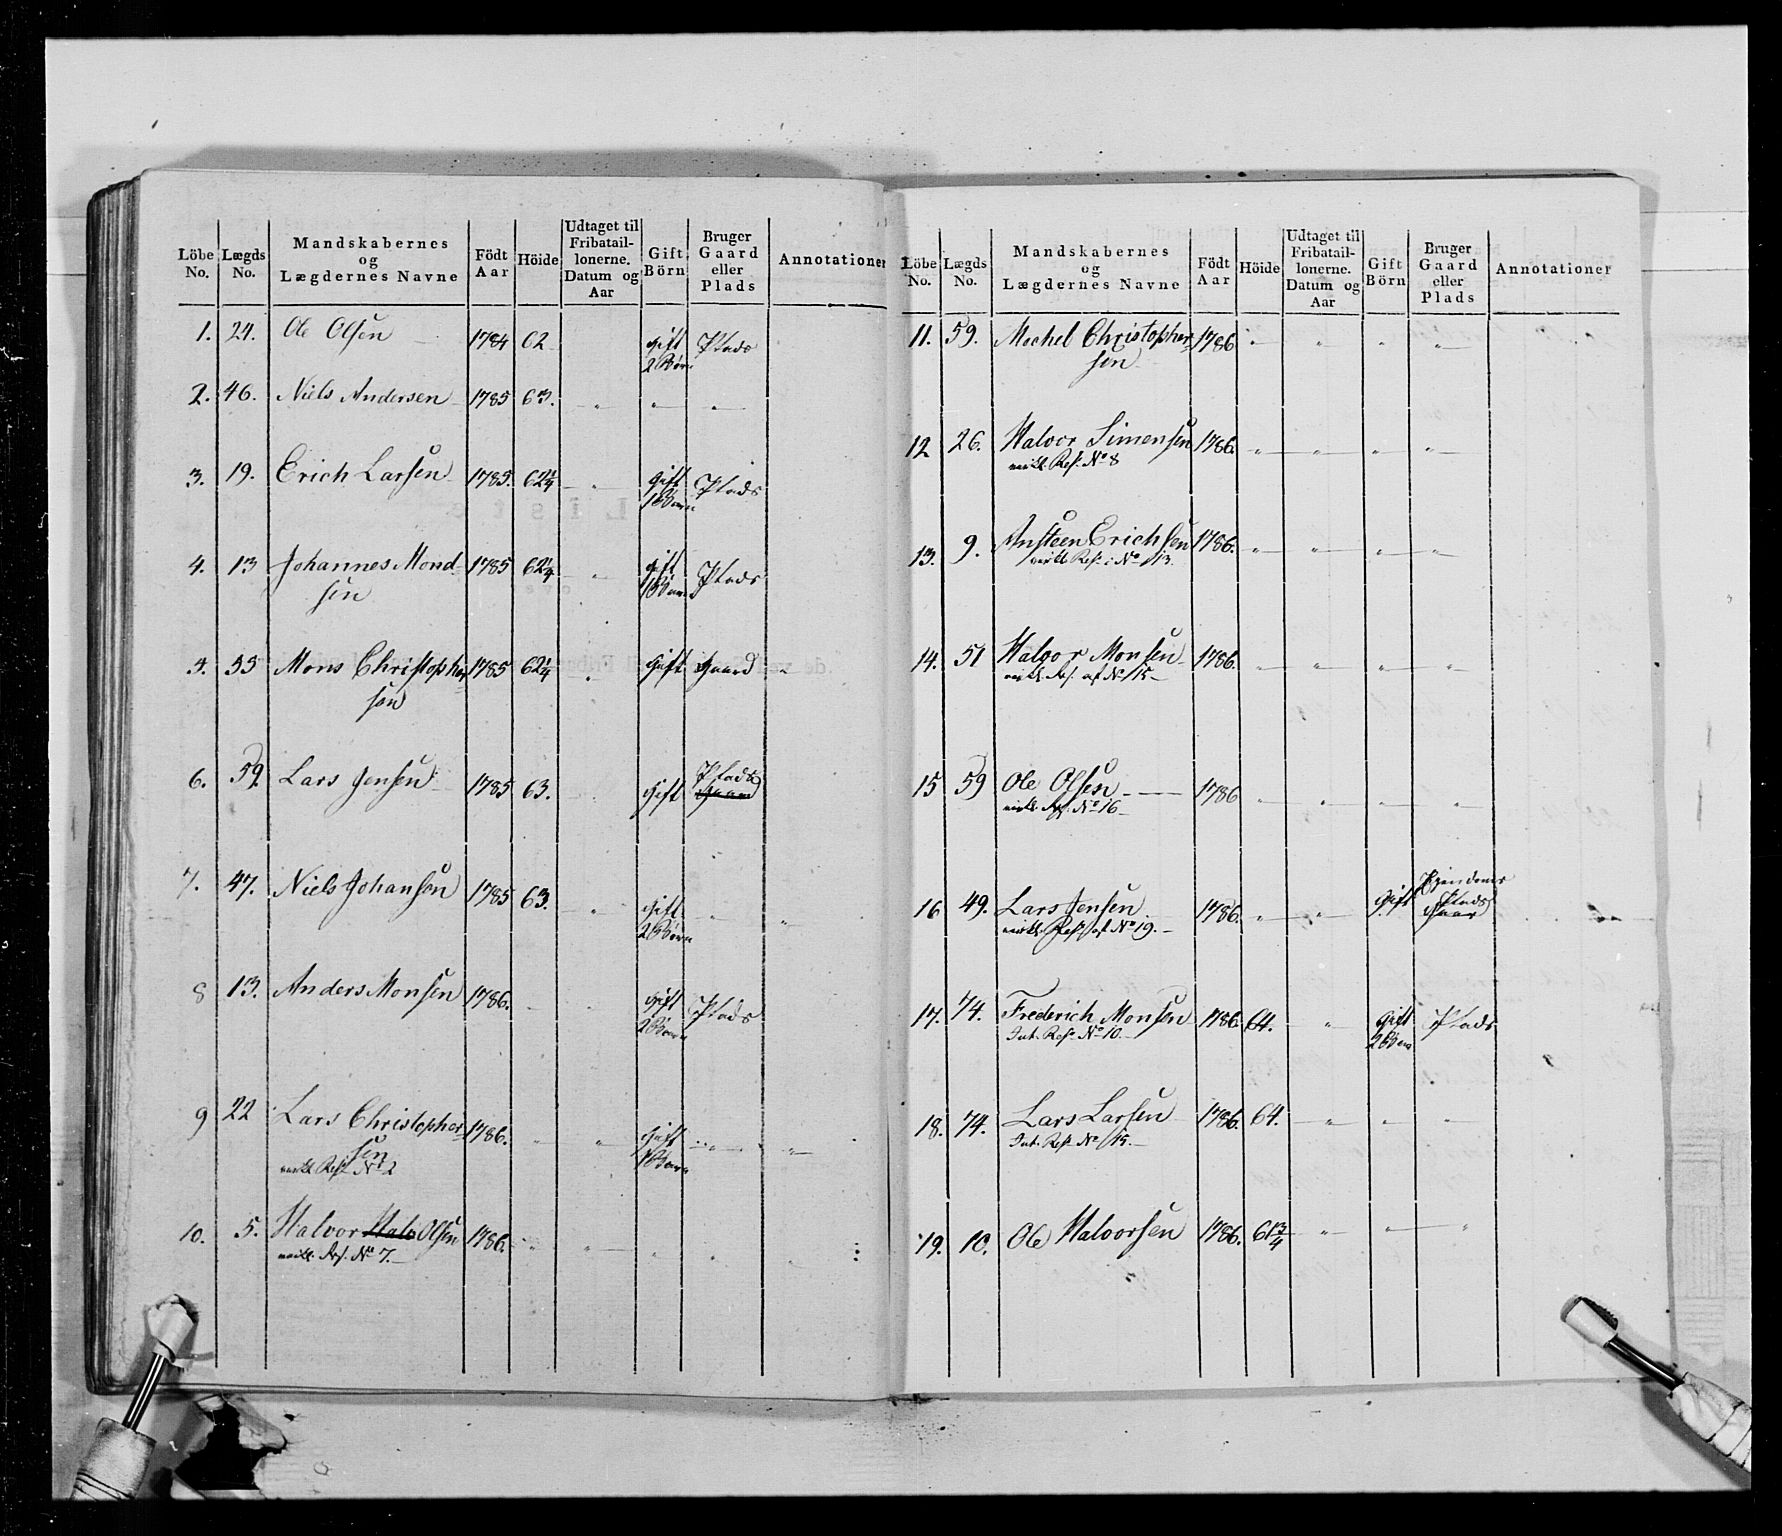 Löbe No. | Lægds No. | Mandskabernes og Lægdernes Navne | Födt Aar | Höide | Udtaget til Fribataillonerne. Datum og Aar | Gift Börn | Bruger Gaard eller Plads | Annotationer
1. 24. Ole Olsen 1784 62 Gift Plads
2 Börn
2. 46. Niels Andersen 1785 63. " " "
3. 19. Erich Larsen 1785. 62¼ " Gift Plads
1 Barn
4. 13 Johannes Mond- 1785 62¼ " Gift Plads
sen 1 Barn
5. 55 Mons Christopher 1785 62¼ " Gift Gaard "
sen
6. 59. Lars Jensen 1785 63. Gift Plads
Gaard
7. 47. Niels Johansen 1785 63. " Gift " "
2 Börn
8 13. Anders Monsen 1786. Gift Plads
2 Barn
9 22 Lars Christopher- 1786. " " Gift " "
sen 1 Barn
No 2
10. 5. Halvor Halv Olsen 1786. " " " " "
No 7.
Löbe No. | Lægds No. | Mandskabernes og Lægdernes Navne | Födt Aar | Höide | Udtaget til Fribataillonerne. Datum og Aar | Gift Börn | Bruger Gaard eller Plads | Annotationer
11. 59. Mechel Christopher- 1786 " " " "
sen
12 26. Halvor Simensen 1786. " " " "
Res: No 8
13. 9. Ansteen Erichsen 1786. " " " "
Res: No 13.
14. 51 Halvor Monsen 1786. " " " "
Res. af No 15
15 59 Ole Olsen 1786 " " " "
No 16
16 49. Lars Jensen 1786. " " Gift Plads
Res. af No 19. Gaard
17. 74. Frederich Monsen 1786. 64. " Gift Plads
Int. Res: No 10. 2 Barn
18. 74. Lars Larsen 1786. 64. " " "
Int. Res: No 15.
19. 10. Ole Halvorsen 1786. 61¾ " " "